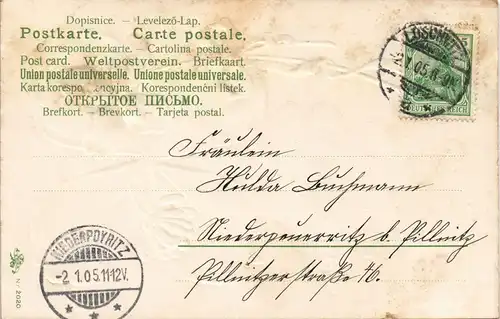 Dopisnice. – Levelező-Lap.
Postkarte. – Carte postale.
Correspondenzkarte. – Cartolina postale.
Post card. – Weltpostverein. – Briefkaart.
Union postale universelle. Unione postale universale.
Karta korespondencyjna. Korespondenční lístek.
ОТКРЫТОЕ ПИСЬМО.
Brefkort. – Brevkort. – Tarjeta postal.
LOSCHWITZ
1.05.
DEUTSCHES REICH
Fräulein
Hulda Buchmann
Niederpeuerritz b. Pillnitz
Pillnitzerstraße 76.
NIEDERPOYRITZ
-2 1.05.11-12V.
N/ 2020